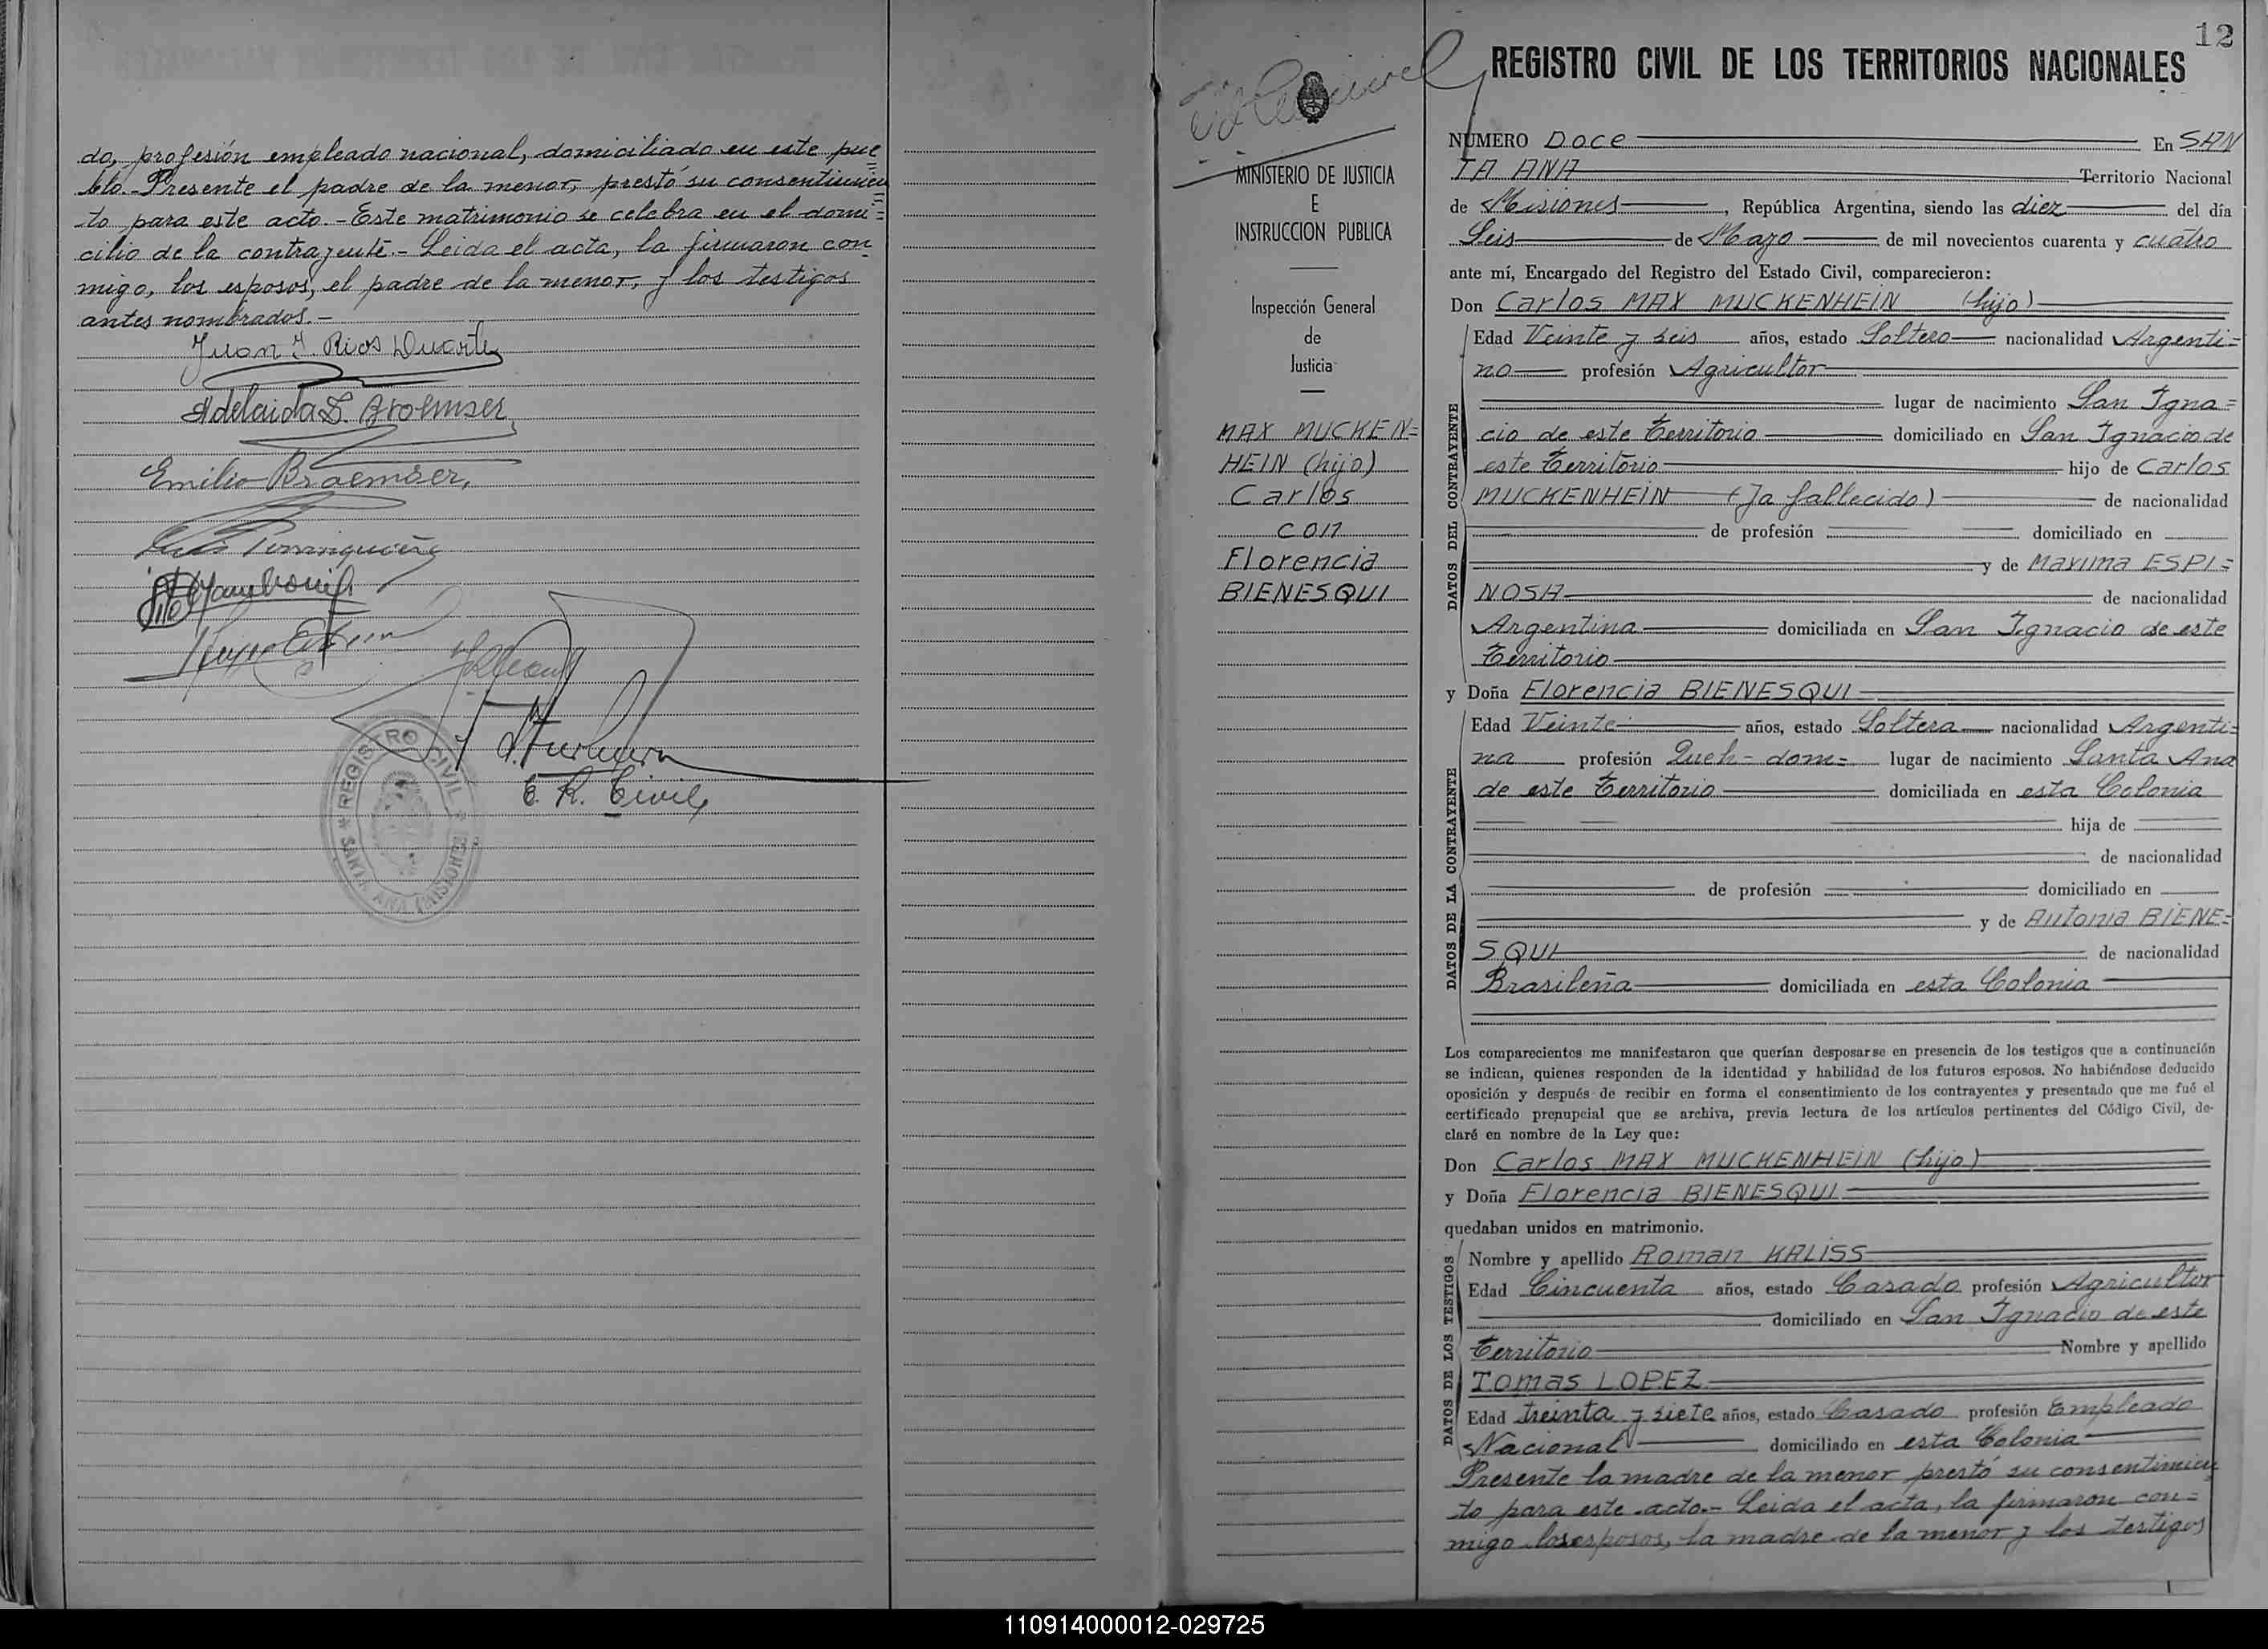 do, profesión empleado nacional, domiciliado en este pue=
blo.- Presente el padre de la menor, prestó su consentimien=
to para este acto.- Este matrimonio se celebra en el domi=
cilio de la contrayente.- Leida el acta, la firmaron con-
migo, los esposos, el padre de la menor, y los testigos
antes nombrados.-
Juan J. Rios Duarte
Adelaida S. Braemser
Emilio Braemser
E. R. Civil
REGISTRO CIVIL
SANTA ANA (MISIONES)
MINISTERIO DE JUSTICIA
E
INSTRUCCION PUBLICA
Inspección General
de
Justicia
MAX MUCKEN=
HEIN (hijo)
Carlos
con
Florencia
BIENESQUI
12
REGISTRO CIVIL DE LOS TERRITORIOS NACIONALES
NUMERO Doce En SAN
TA ANA Territorio Nacional
de Misiones, República Argentina, siendo las diez del día
Seis de Mayo de mil novecientos cuarenta y cuatro
ante mí, Encargado del Registro del Estado Civil, comparecieron:
Don Carlos MAX MUCKENHEIN (hijo)
DATOS DEL CONTRAYENTE
Edad Veinte y seis años, estado Soltero nacionalidad Argenti=
no profesión Agricultor
lugar de nacimiento San Igna=
cio de este Territorio domiciliado en San Ignacio de
este Territorio hijo de Carlos
MUCKENHEIN (Ya fallecido) de nacionalidad
de profesión domiciliado en
y de Maxima ESPI=
NOSA de nacionalidad
Argentina domiciliada en San Ignacio de este
Territorio
y Doña Florencia BIENESQUI
DATOS DE LA CONTRAYENTE
Edad Veinte años, estado Soltera nacionalidad Argenti=
na profesión Queh- dom= lugar de nacimiento Santa Ana
de este Territorio domiciliada en esta Colonia
hija de
de nacionalidad
de profesión domiciliado en
y de Antonia BIENE=
SQUI de nacionalidad
Brasileña domiciliada en esta Colonia
Los comparecientes me manifestaron que querían desposarse en presencia de los testigos que a continuación
se indican, quienes responden de la identidad y habilidad de los futuros esposos. No habiéndose deducido
oposición y después de recibir en forma el consentimiento de los contrayentes y presentado que me fué el
certificado prenupcial que se archiva, previa lectura de los artículos pertinentes del Código Civil, de-
claré en nombre de la Ley que:
Don Carlos MAX MUCKENHEIN (hijo)
y Doña Florencia BIENESQUI
quedaban unidos en matrimonio.
DATOS DE LOS TESTIGOS
Nombre y apellido Roman KALISS
Edad Cincuenta años, estado Casado profesión Agricultor
domiciliado en San Ignacio de este
Territorio Nombre y apellido
Tomas LOPEZ
Edad treinta y siete años, estado Casado profesión Empleado
Nacional domiciliado en esta Colonia
Presente la madre de la menor prestó su consentimien
to para este acto.- Leida el acta, la firmaron con=
migo los esposos, la madre de la menor y los testigos
110914000012-029725